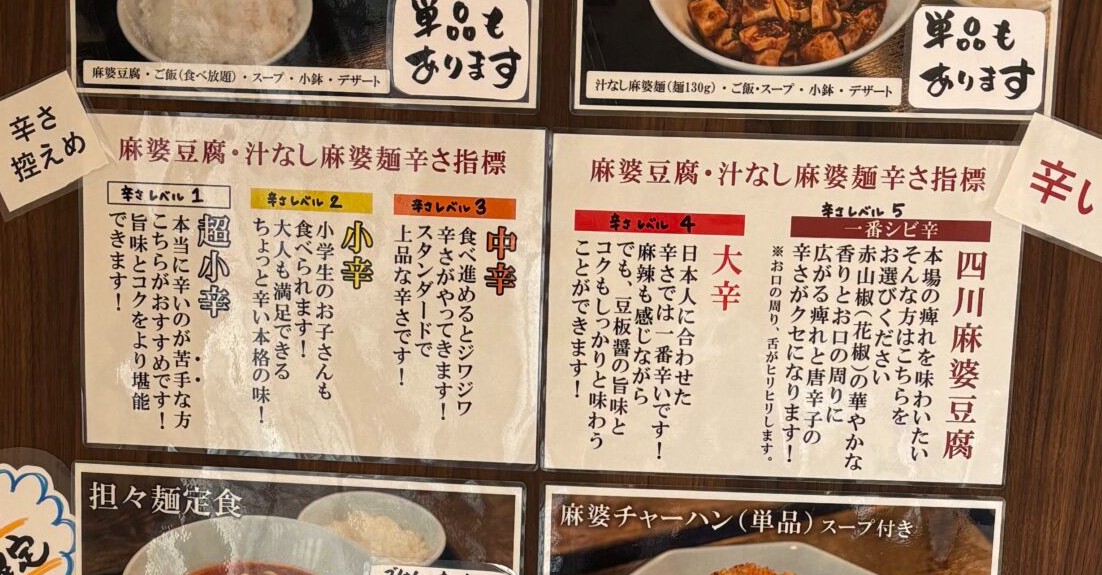 単品も
あります
麻婆豆腐・ご飯(食べ放題)・スープ・小鉢・デザート
単品も
あります
汁なし麻婆麺(麺130g)・ご飯・スープ・小鉢・デザート
辛さ
控えめ
麻婆豆腐・汁なし麻婆麺辛さ指標
辛さレベル 1
超小辛
本当に辛いのが苦手な方
こちらがおすすめです!
旨味とコクをより堪能
できます!
辛さレベル 2
小辛
小学生のお子さんも
食べられます!
大人も満足できる
ちょっと辛い本格の味!
辛さレベル 3
中辛
食べ進めるとジワジワ
辛さがやってきます!
スタンダードで
上品な辛さです!
麻婆豆腐・汁なし麻婆麺辛さ指標
辛さレベル 4
大辛
日本人に合わせた
辛さでは一番辛いです!
麻辣も感じながら
でも、豆板醤の旨味と
コクもしっかりと味わう
ことができます!
辛さレベル 5
一番シビ辛
四川麻婆豆腐
本場の痺れを味わいたい
そんな方はこちらを
お選びください
赤山椒(花椒)の華やかな
香りとお口の周りに
広がる痺れと唐辛子の
辛さがクセになります!
※お口の周り、舌がヒリヒリします。
辛い
担々麺定食
麻婆チャーハン(単品)スープ付き
定